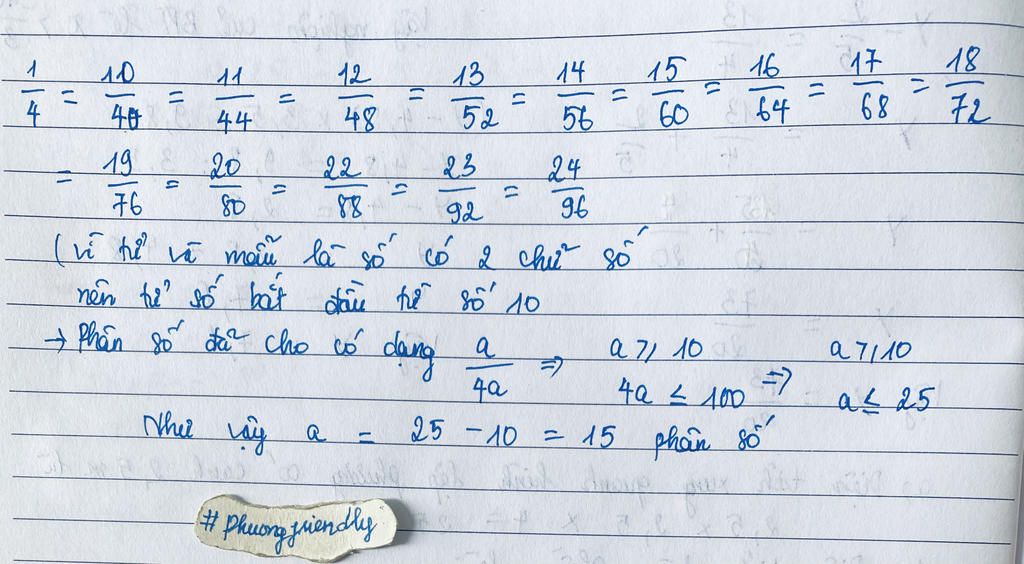 1/4 = 10/40 = 11/44 = 12/48 = 13/52 = 14/56 = 15/60 = 16/64 = 17/68 = 18/72
= 19/76 = 20/80 = 22/88 = 23/92 = 24/96
(vì tử và mẫu là số có 2 chữ số
nên tử số bắt đầu từ số 10
→ Phân số đã cho có dạng a/4a ⇒ a ⩾ 10 a ⩾ 10
4a ≤ 100 ⇒ a ≤ 25
Như vậy a = 25 - 10 = 15 phân số
#Phuongfriendly